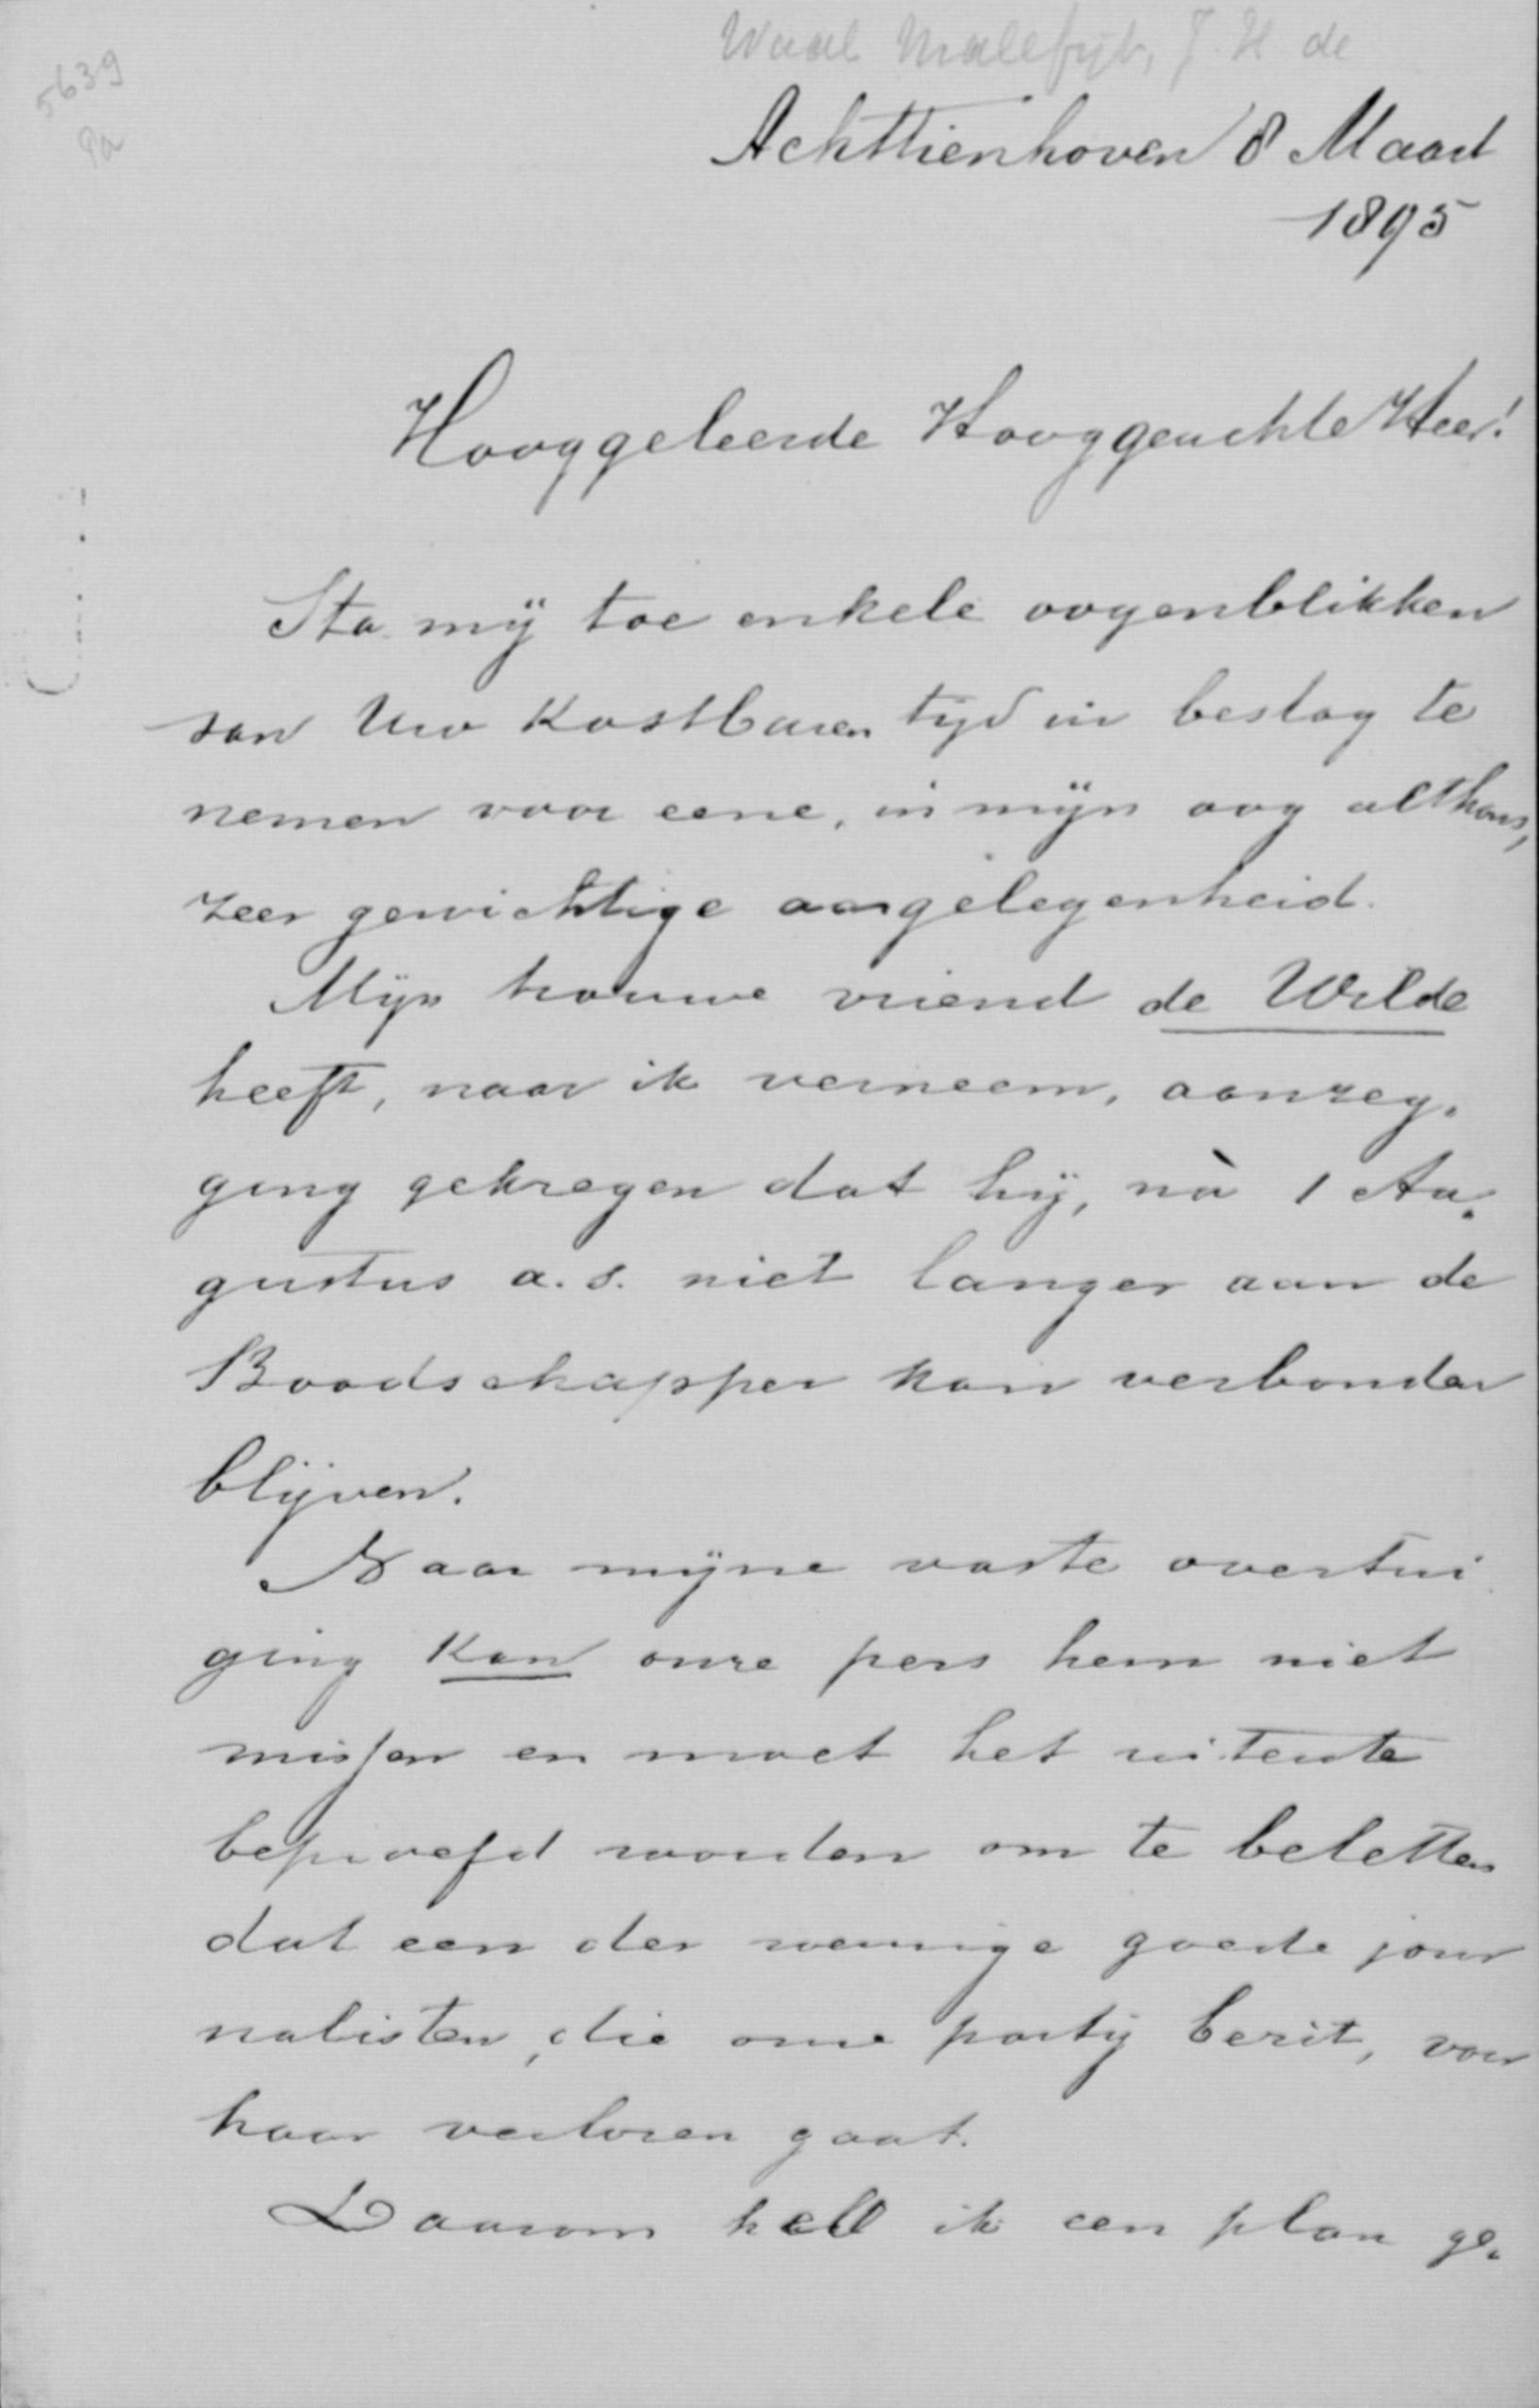 Waal Malefijt, J. H. de
5639
9a
Achttienhoven 8 Maart
1895
Hooggeleerde Hooggeachte Heer!
Sta mij toe enkele oogenblikken
van Uw kostbaren tijd in beslag te
nemen voor eene, in mijn oog althans,
zeer gewichtige aangelegenheid.
Mijn trouwe vriend de Wilde
heeft, naar ik verneem, aanzeg-
ging gekregen dat hij, nà 1 Au-
gustus a.s. niet langer aan de
Boodschapper kan verbonden
blijven.
Naar mijne vaste overtui
ging kan onze pers hem niet
missen en moet het uiterste
beproefd worden om te beletten
dat een der weinige goede jour
nalisten, die onze partij bezit, voor
haar verloren gaat.
Daarom heb ik een plan ge-